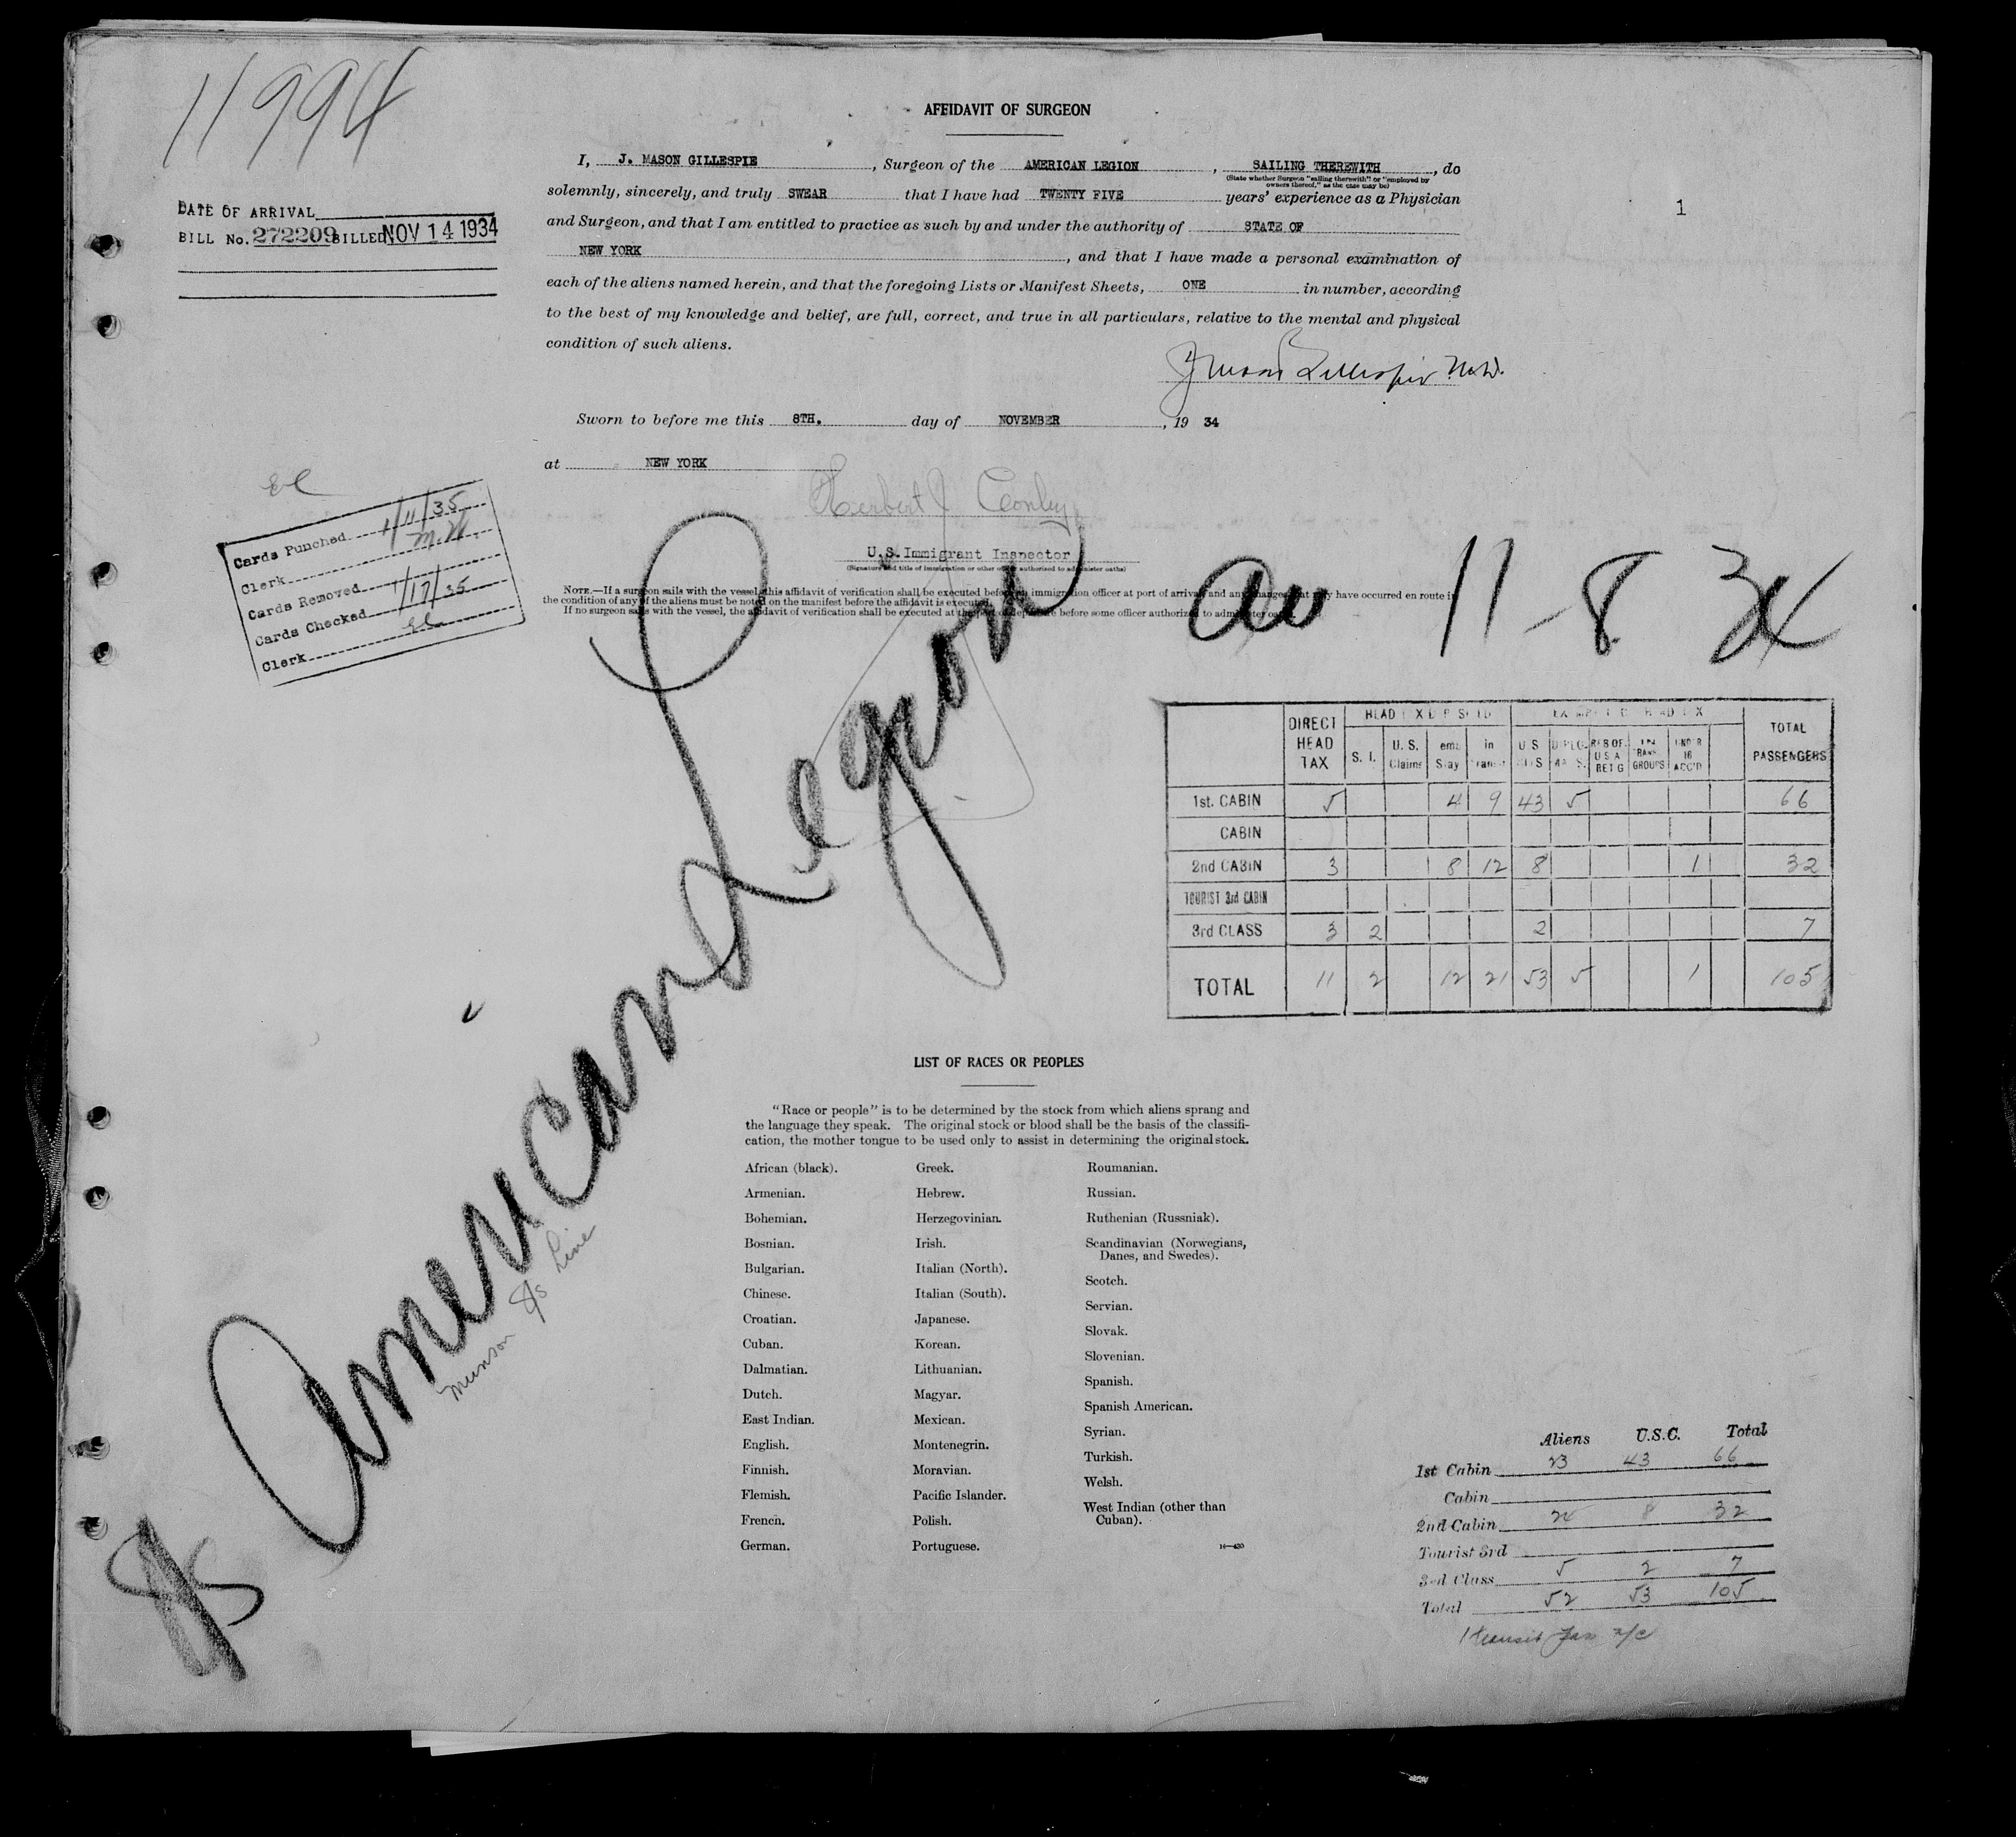 11994
AFFIDAVIT OF SURGEON
I, J. MASON GILLESPIE, Surgeon of the AMERICAN LEGION, SAILING THEREWITH, do
(State whether Surgeon "sailing therewith" or "employed by
owners thereof," as the case may be)
solemnly, sincerely, and truly SWEAR that I have had TWENTY FIVE years' experience as a Physician
and Surgeon, and that I am entitled to practice as such by and under the authority of STATE OF
NEW YORK, and that I have made a personal examination of
each of the aliens named herein, and that the foregoing Lists or Manifest Sheets, ONE in number, according
to the best of my knowledge and belief, are full, correct, and true in all particulars, relative to the mental and physical
condition of such aliens.
J Mason Gillespie M.D.
DATE OF ARRIVAL
BILL No. 272209 BILLED NOV 14 1934
1
Sworn to before me this 8TH. day of NOVEMBER, 19 34
at NEW YORK
Herbert J Conley
U.S. Immigrant Inspector
(Signature and title of immigration or other officer authorized to administer oaths)
NOTE.—If a surgeon sails with the vessel, this affidavit of verification shall be executed before an immigration officer at port of arrival and any changes that may have occurred en route in
the condition of any of the aliens must be noted on the manifest before the affidavit is executed.
If no surgeon sails with the vessel, the affidavit of verification shall be executed at the port of departure before some officer authorized to administer oaths.
El
Cards Punched 1/11/35
Clerk M.H.
Cards Removed
Cards Checked 1/17/35
Clerk El
arr 11-8 34
S/S American Legion
Munson S/s Line
DIRECT HEAD TAX
HEAD TAX DEPOSITED
EXEMPT FROM HEAD TAX
TOTAL PASSENGERS
S. I. U. S. Claims Temp Stay in Transit U S CITS DIPLOMATS RES OF U S A RET'G IN TRANS GROUPS UNDER 16 ACC'D
1st. CABIN 5 4 9 43 5 66
CABIN
2nd CABIN 3 8 12 8 1 32
TOURIST 3rd CABIN
3rd CLASS 3 2 2 7
TOTAL 11 2 12 21 53 5 1 105
LIST OF RACES OR PEOPLES
"Race or people" is to be determined by the stock from which aliens sprang and
the language they speak. The original stock or blood shall be the basis of the classifi-
cation, the mother tongue to be used only to assist in determining the original stock.
African (black).
Armenian.
Bohemian.
Bosnian.
Bulgarian.
Chinese.
Croatian.
Cuban.
Dalmatian.
Dutch.
East Indian.
English.
Finnish.
Flemish.
French.
German.
Greek.
Hebrew.
Herzegovinian.
Irish.
Italian (North).
Italian (South).
Japanese.
Korean.
Lithuanian.
Magyar.
Mexican.
Montenegrin.
Moravian.
Pacific Islander.
Polish.
Portuguese.
Roumanian.
Russian.
Ruthenian (Russniak).
Scandinavian (Norwegians,
Danes, and Swedes).
Scotch.
Servian.
Slovak.
Slovenian.
Spanish.
Spanish American.
Syrian.
Turkish.
Welsh.
West Indian (other than
Cuban).
Aliens U.S.C. Total
1st Cabin 23 43 66
Cabin
2nd Cabin 24 8 32
Tourist 3rd
3rd Class 5 2 7
Total 52 53 105
1 transit